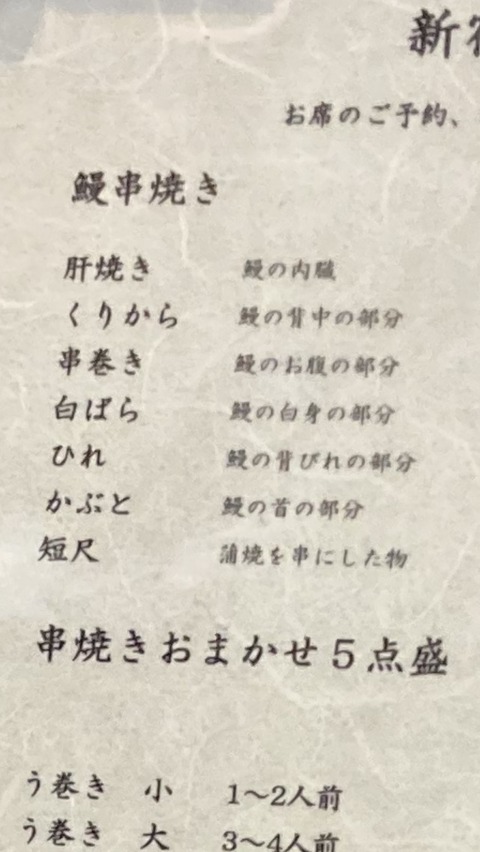 新
お席のご予約、
鰻串焼き
肝焼き 鰻の内臓
くりから 鰻の背中の部分
串巻き 鰻のお腹の部分
白ばら 鰻の白身の部分
ひれ 鰻の背びれの部分
かぶと 鰻の首の部分
短尺 蒲焼を串にした物
串焼きおまかせ5点盛
う巻き 小 1〜2人前
う巻き 大 3〜4人前